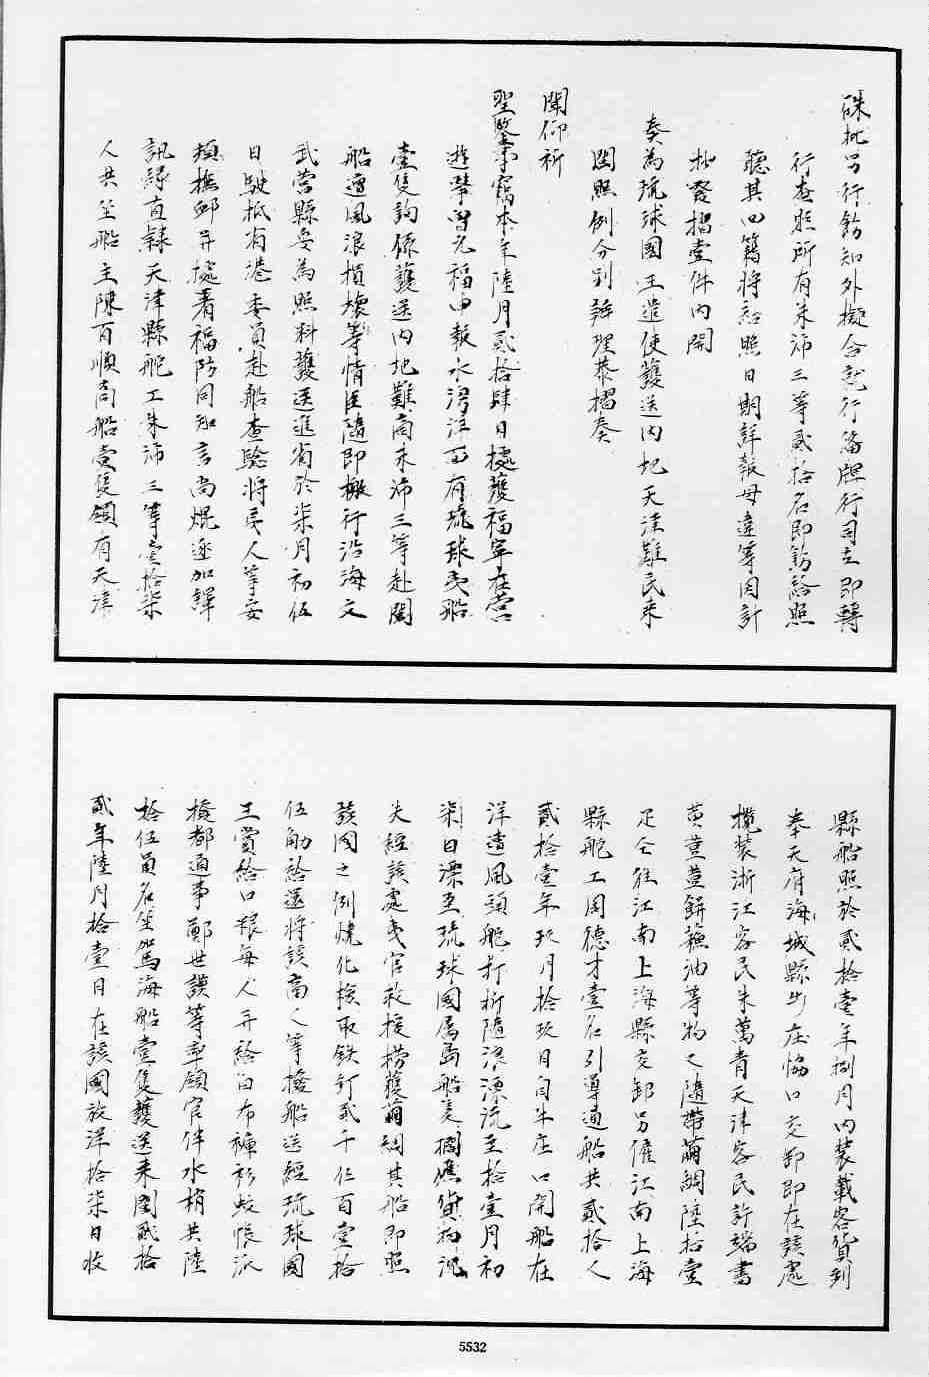 硃批另行飭知外擬合就行備牌行司立即轉
行查照所有朱沛三等貳拾名即飭給照
聽其回籍將給照日期詳報毋違等因計
抄發摺壹件內開
奏為琉球國王遣使護送內地天津難民來
閩照例分別辦理恭摺奏
聞仰祈
聖鑒事竊本年陸月貳拾肆日據護福寧左營
遊擊曾元福申報水澳洋面有琉球夷船
壹隻詢係護送內地難商朱沛三等赴閩
船遭風浪損壞等情臣隨即檄行沿海文
武營縣妥為照料護送進省於柒月初伍
日駛抵省港委員赴船查驗將夷人等安
頓撫卹并據署福防同知言尚焜逐加譯
訊緣直隸天津縣舵工朱沛三等壹拾柒
人共坐船主陳百順商船壹隻領有天津
縣船照於貳拾壹年捌月內裝載客貨到
奉天府海城縣牛庄協口交卸即在該處
攬裝浙江客民朱萬青天津客民許瑞書
黃荳荳餅蘇油等物又隨帶繭綢陸拾壹
疋仝往江南上海縣交卸另僱江南上海
縣舵工周德才壹名引導通船共貳拾人
貳拾壹年玖月拾玖日自牛庄口開船在
洋遭風頭舵打折隨浪漂流至拾壹月初
柒日漂至琉球國屬島船隻擱礁貨物沉
失經該處夷官救援撈獲繭綢其船即照
該國之例燒化檢取鉄釘貳千仁百壹拾
伍觔給還將該商人等撥船送經琉球國
王賞給口糧每人并給白布褲衫蚊帳派
撥都通事鄭世謨等率領官伴水梢共陸
拾伍員名坐駕海船壹隻護送來閩貳拾
貳年陸月拾壹日在該國放洋拾柒日收
5532